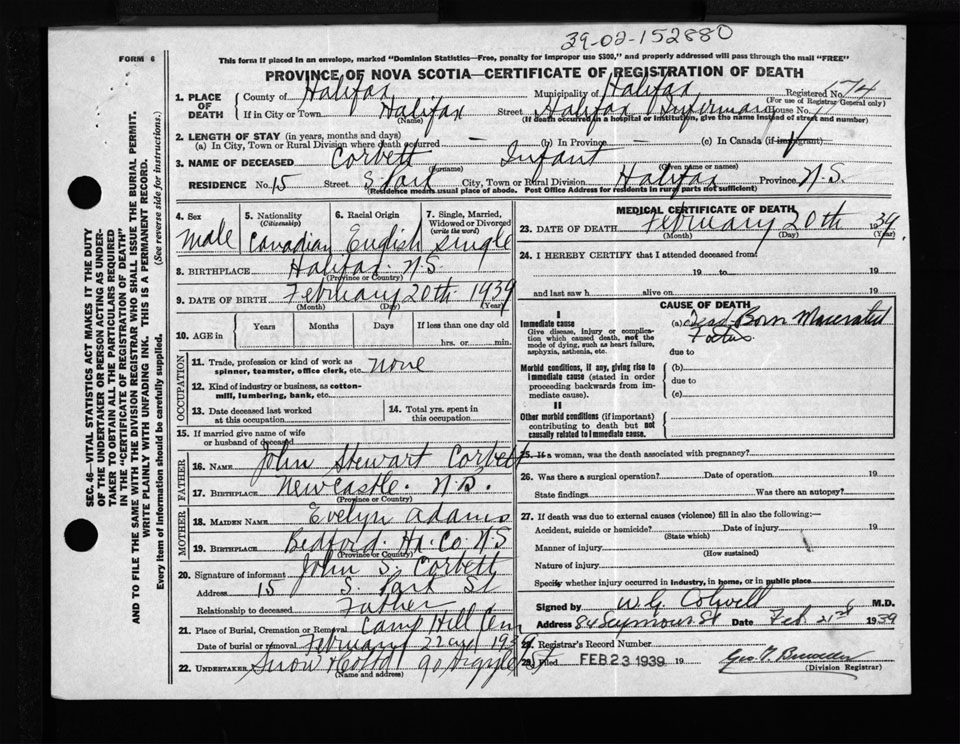 39-02-152880
FORM 6
This form if placed in an envelope, marked "Dominion Statistics—Free, penalty for improper use $300," and properly addressed will pass through the mail "FREE"
PROVINCE OF NOVA SCOTIA—CERTIFICATE OF REGISTRATION OF DEATH
1. PLACE OF DEATH County of Halifax Municipality of Halifax Registered No. 174
(For use of Registrar General only)
If in City or Town Halifax Street Halifax Infirmary House No.
(Name) (If death occurred in a hospital or institution, give the name instead of street and number)
2. LENGTH OF STAY (in years, months and days)
(a) In City, Town or Rural Division where death occurred (b) In Province (c) In Canada (if immigrant)
3. NAME OF DECEASED Corbett Infant
(Surname) (Given name or names)
RESIDENCE No. 15 Street S. Park City, Town or Rural Division Halifax Province N.S.
(Residence means usual place of abode. Post Office Address for residents in rural parts not sufficient)
4. Sex 5. Nationality (Citizenship) 6. Racial Origin 7. Single, Married, Widowed or Divorced (write the word)
Male Canadian English Single
8. BIRTHPLACE Halifax. N.S.
(Province or Country)
9. DATE OF BIRTH February 20th 1939
(Month) (Day) (Year)
10. AGE in Years Months Days If less than one day old
hrs. or min.
OCCUPATION
11. Trade, profession or kind of work as spinner, teamster, office clerk, etc. none
12. Kind of industry or business, as cotton-mill, lumbering, bank, etc.
13. Date deceased last worked at this occupation 14. Total yrs. spent in this occupation
15. If married give name of wife or husband of deceased
FATHER
16. NAME John Stewart Corbett
17. BIRTHPLACE Newcastle. N.B.
(Province or Country)
MOTHER
18. MAIDEN NAME Evelyn Adams
19. BIRTHPLACE Bedford. Hx. Co. N.S
(Province or Country)
20. Signature of informant John S. Corbett
Address 15 S. Park St
Relationship to deceased Father
21. Place of Burial, Cremation or Removal Camp Hill Cem
Date of burial or removal February 22nd 1939
22. UNDERTAKER Snow & Co Ltd 90 Argyle St
(Name and address)
MEDICAL CERTIFICATE OF DEATH
23. DATE OF DEATH February 20th 1939.
(Month) (Day) (Year)
24. I HEREBY CERTIFY that I attended deceased from:
19 to 19
and last saw h alive on 19
CAUSE OF DEATH
I
Immediate cause (a) Dead Born Macerated
Give disease, injury or complication which caused death, not the mode of dying, such as heart failure, asphyxia, asthenia, etc. Foetus
due to
Morbid conditions, if any, giving rise to immediate cause (stated in order proceeding backwards from immediate cause). (b)
due to
(c)
II
Other morbid conditions (if important) contributing to death but not causally related to immediate cause.
25. If a woman, was the death associated with pregnancy?
26. Was there a surgical operation? Date of operation 19
State findings Was there an autopsy?
27. If death was due to external causes (violence) fill in also the following:—
Accident, suicide or homicide? Date of injury 19
(State which)
Manner of injury
(How sustained)
Nature of injury
Specify whether injury occurred in industry, in home, or in public place
Signed by W.G. Colwell M.D.
Address 84 Seymour St Date Feb. 21st 1939
28. Registrar's Record Number
29. Filed FEB 23 1939 19
(Division Registrar)
SEC. 46—VITAL STATISTICS ACT MAKES IT THE DUTY
OF THE UNDERTAKER OR PERSON ACTING AS UNDER-
TAKER TO OBTAIN ALL THE PARTICULARS REQUIRED
IN THE "CERTIFICATE OF REGISTRATION OF DEATH"
AND TO FILE THE SAME WITH THE DIVISION REGISTRAR WHO SHALL ISSUE THE BURIAL PERMIT.
WRITE PLAINLY WITH UNFADING INK. THIS IS A PERMANENT RECORD.
Every item of information should be carefully supplied. (See reverse side for instructions.)